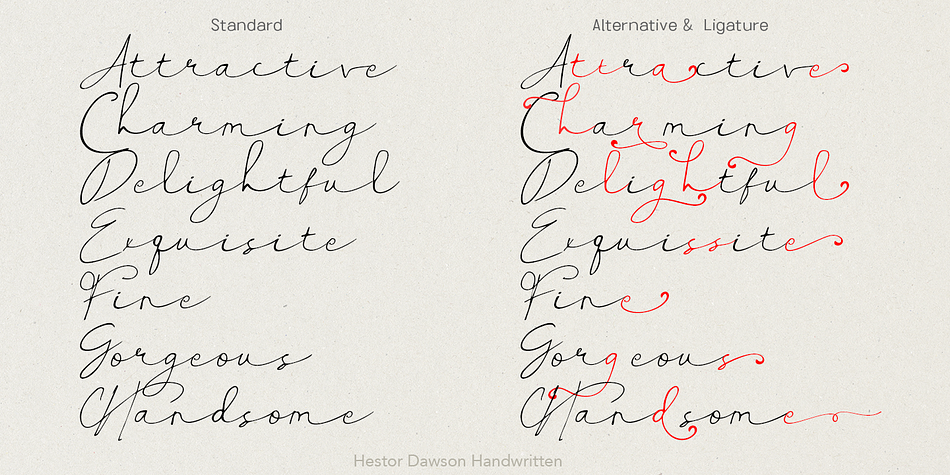 Standard
Alternative & Ligature
Attractive
Charming
Delightful
Exquisite
Fine
Gorgeous
Handsome
Attractive
Charming
Delightful
Exquissite
Fine
Gorgeous
Handsome
Hestor Dawson Handwritten